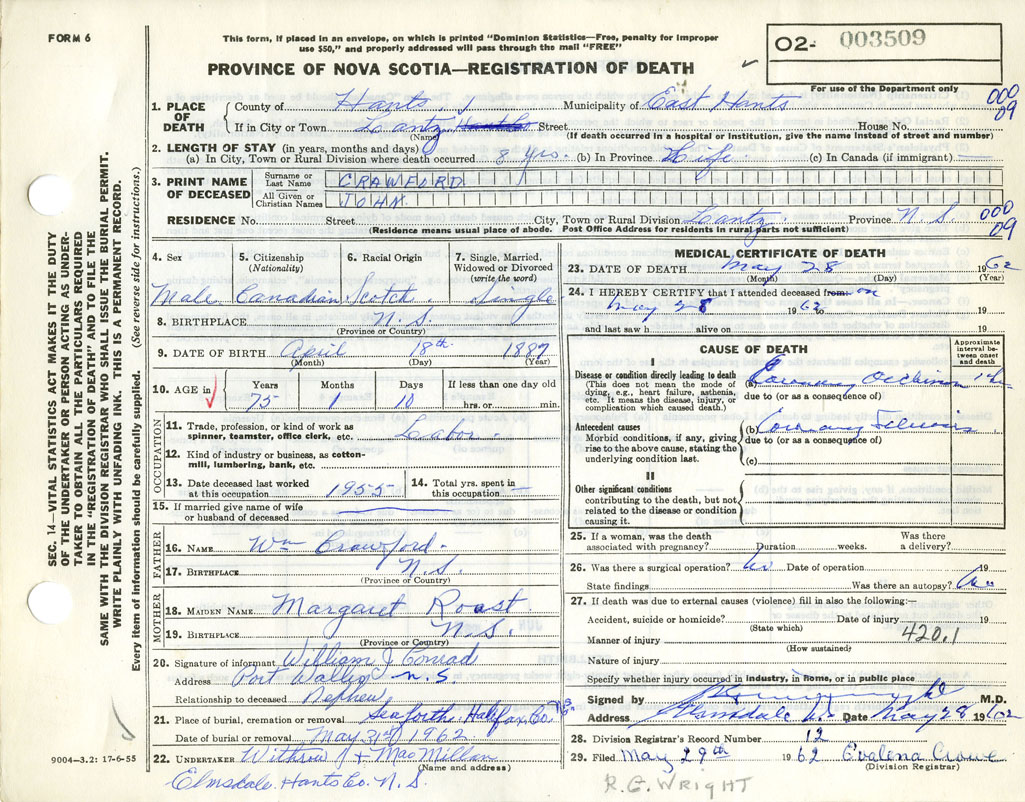 FORM 6
This form, if placed in an envelope, on which is printed "Dominion Statistics—Free, penalty for improper
use $50," and properly addressed will pass through the mail "FREE"
PROVINCE OF NOVA SCOTIA—REGISTRATION OF DEATH
02- 003509
For use of the Department only
000
09
SEC. 14—VITAL STATISTICS ACT MAKES IT THE DUTY
OF THE UNDERTAKER OR PERSON ACTING AS UNDER-
TAKER TO OBTAIN ALL THE PARTICULARS REQUIRED
IN THE "REGISTRATION OF DEATH" AND TO FILE THE
SAME WITH THE DIVISION REGISTRAR WHO SHALL ISSUE THE BURIAL PERMIT.
WRITE PLAINLY WITH UNFADING INK. THIS IS A PERMANENT RECORD.
Every item of information should be carefully supplied. (See reverse side for instructions.)
1. PLACE OF DEATH County of Hants Municipality of East Hants
If in City or Town Lantz Hants Co Street House No.
(Name) (If death occurred in a hospital or institution, give the name instead of street and number)
2. LENGTH OF STAY (in years, months and days)
(a) In City, Town or Rural Division where death occurred 8 yrs. (b) In Province Life (c) In Canada (if immigrant) —
3. PRINT NAME OF DECEASED Surname or Last Name CRAWFORD
All Given or Christian Names JOHN
RESIDENCE No. Street City, Town or Rural Division Lantz. Province N S
000
09
(Residence means usual place of abode. Post Office Address for residents in rural parts not sufficient)
4. Sex 5. Citizenship (Nationality) 6. Racial Origin 7. Single, Married, Widowed or Divorced (write the word)
Male Canadian Scotch Single
8. BIRTHPLACE N.S.
(Province or Country)
9. DATE OF BIRTH April 18th 1887
(Month) (Day) (Year)
10. AGE in Years Months Days If less than one day old
75 1 10 hrs. or min.
OCCUPATION
11. Trade, profession, or kind of work as
spinner, teamster, office clerk, etc. Labor
12. Kind of industry or business, as cotton-
mill, lumbering, bank, etc.
13. Date deceased last worked at this occupation 1955 14. Total yrs. spent in this occupation —
15. If married give name of wife
or husband of deceased
FATHER
16. NAME Wm Crawford.
17. BIRTHPLACE N.S.
(Province or Country)
MOTHER
18. MAIDEN NAME Margaret Roast
19. BIRTHPLACE N.S.
(Province or Country)
20. Signature of informant William J Conrad
Address Port Wallis N.S
Relationship to deceased Nephew
21. Place of burial, cremation or removal Seaforth Halifax Co. N.S.
Date of burial or removal May 31st 1962
22. UNDERTAKER Withrow & MacMillan
(Name and address)
Elmsdale. Hants Co. N.S.
9004—3.2: 17-6-55
MEDICAL CERTIFICATE OF DEATH
23. DATE OF DEATH May 28 1962
(Month) (Day) (Year)
24. I HEREBY CERTIFY that I attended deceased from on
May 28 1962 19
and last saw h alive on 19
CAUSE OF DEATH
Approximate interval between onset and death
I
Disease or condition directly leading to death
(This does not mean the mode of
dying, e.g., heart failure, asthenia,
etc. It means the disease, injury, or
complication which caused death.)
(a) Coronary Occlusion
due to (or as a consequence of)
Antecedent causes
Morbid conditions, if any, giving
rise to the above cause, stating the
underlying condition last.
(b) Coronary
due to (or as a consequence of)
(c)
II
Other significant conditions
contributing to the death, but not
related to the disease or condition
causing it.
25. If a woman, was the death associated with pregnancy? Duration weeks. Was there a delivery?
26. Was there a surgical operation? No Date of operation 19
State findings Was there an autopsy? No
27. If death was due to external causes (violence) fill in also the following:—
Accident, suicide or homicide? Date of injury 19
(State which)
420.1
Manner of injury
(How sustained)
Nature of injury
Specify whether injury occurred in industry, in home, or in public place
Signed by M.D.
Address Elmsdale Date May 28 1962
28. Division Registrar's Record Number 12
29. Filed May 29th 1962 Evalena Crowe
(Division Registrar)
R.E. WRIGHT